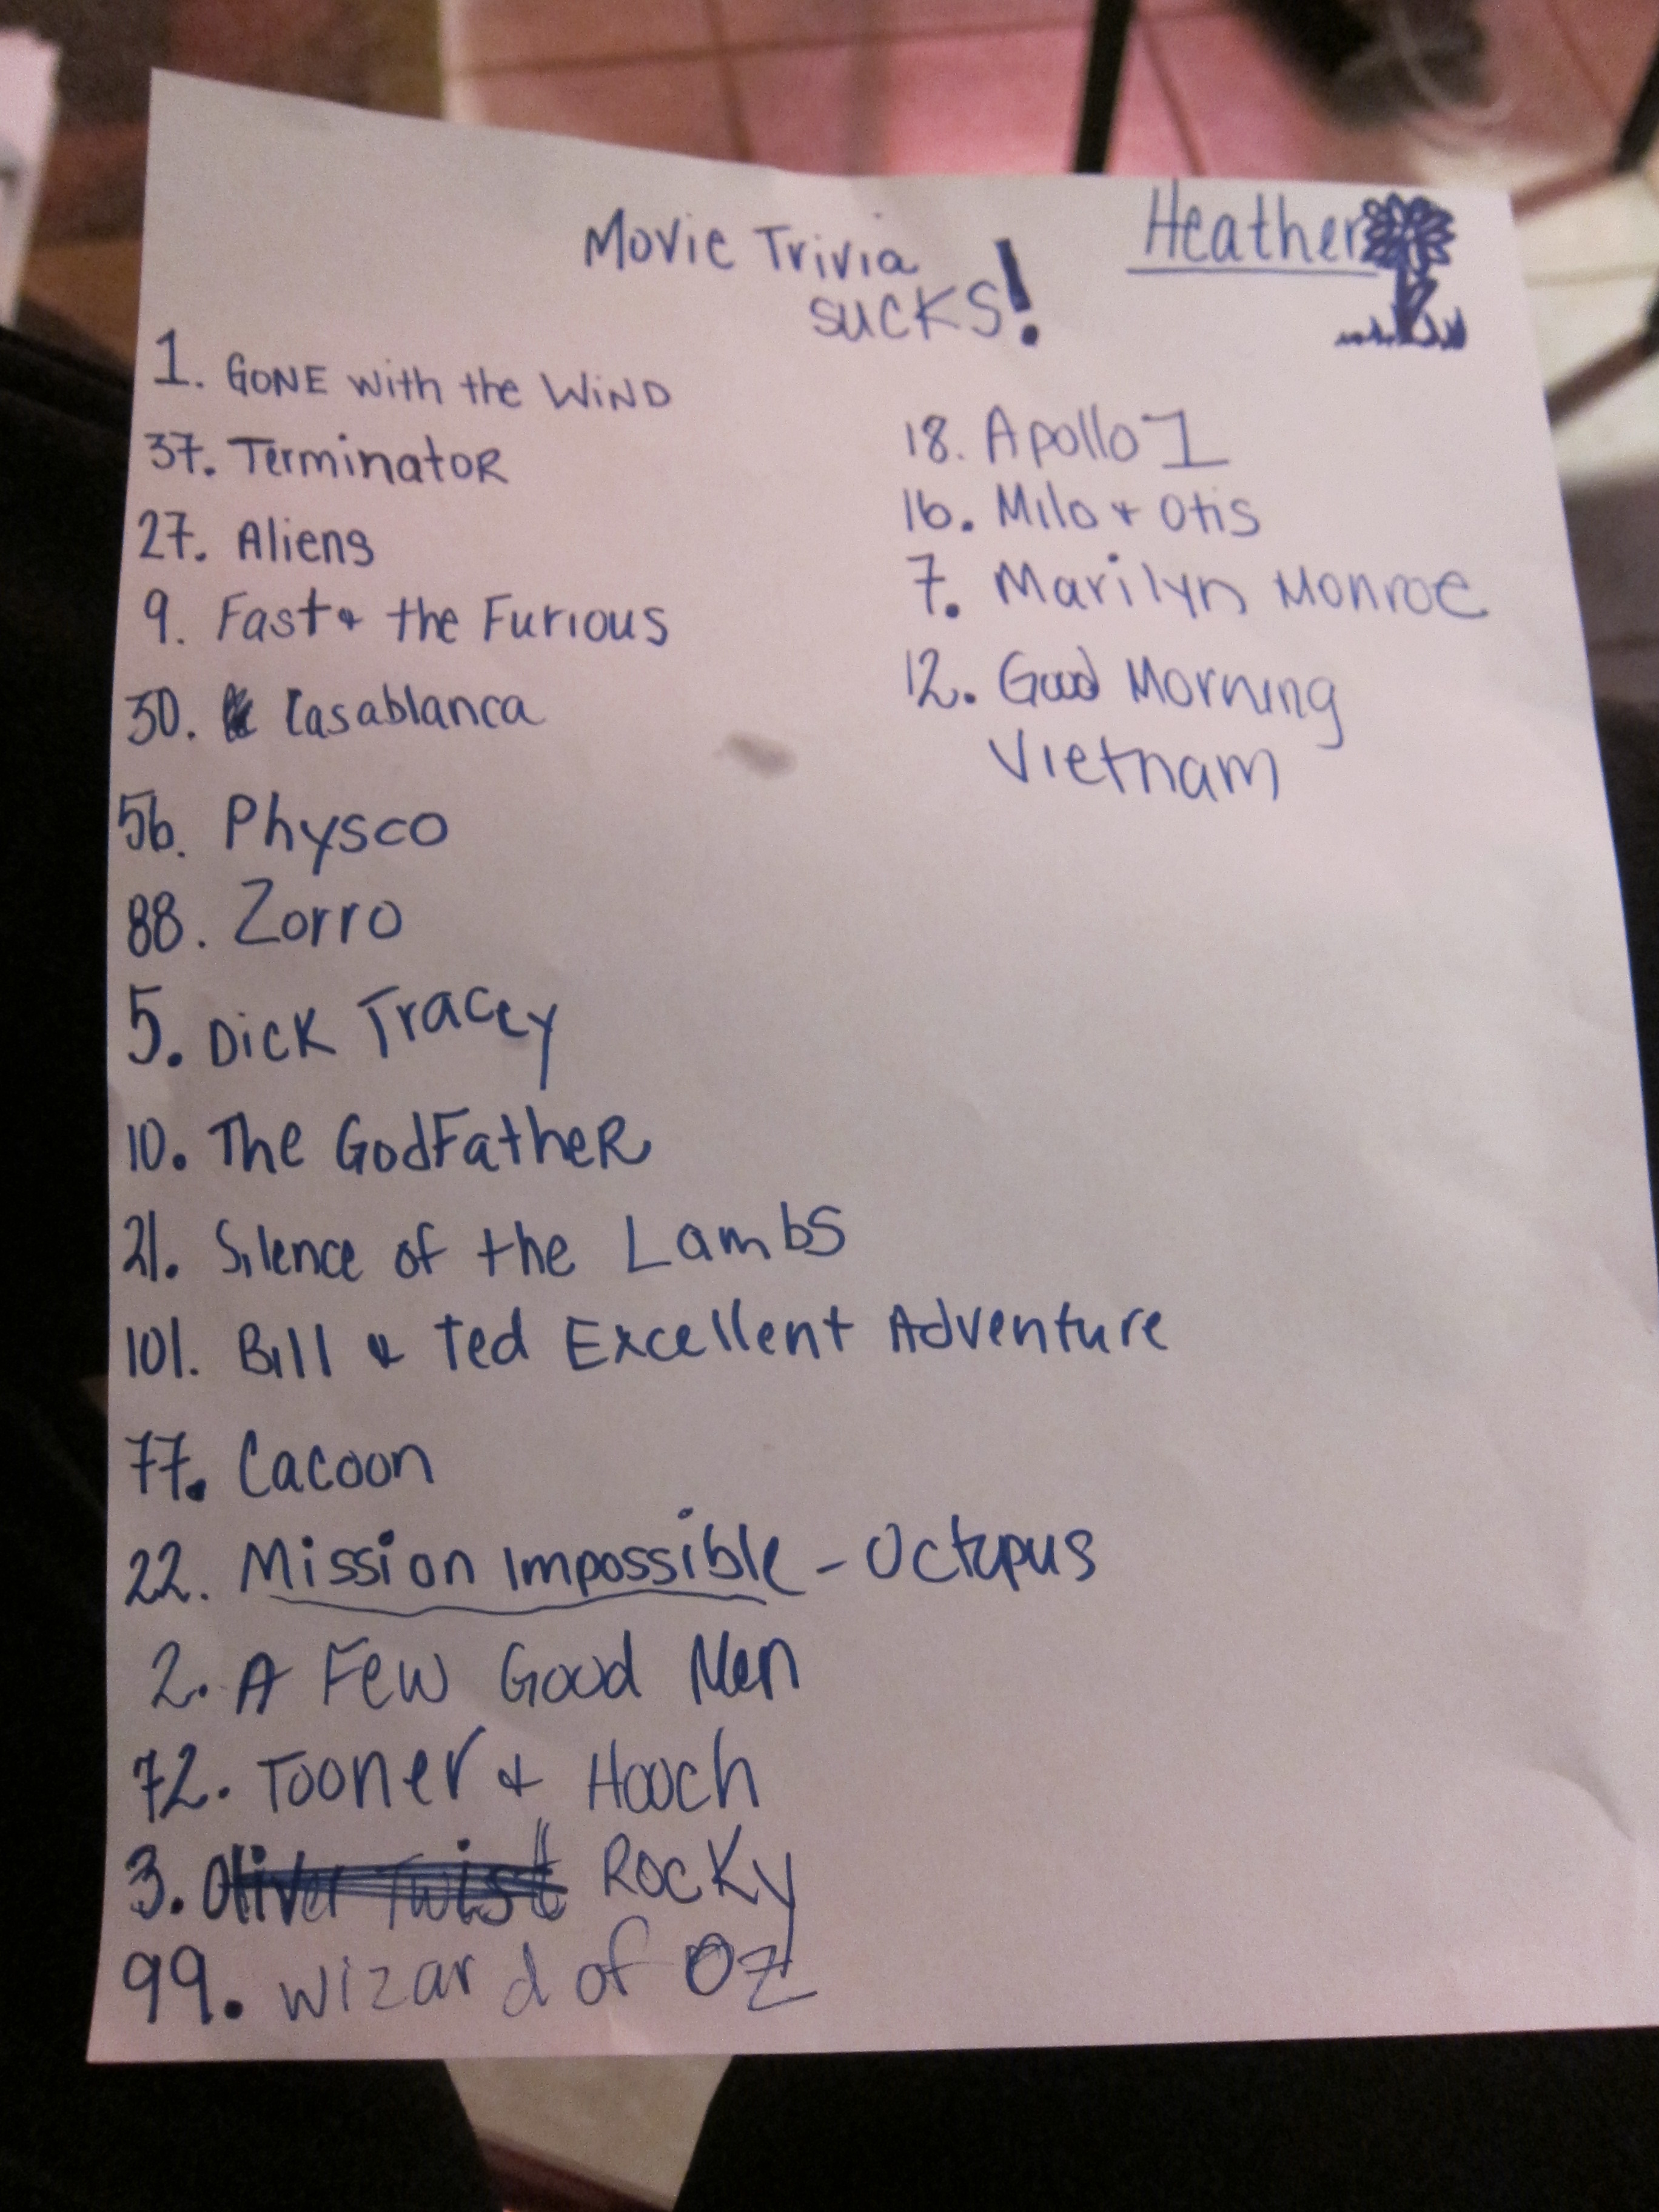 Movie Trivia
SUCKS!
Heather
1. GONE with the WIND
37. Terminator
27. Aliens
9. Fast & the Furious
30. Casablanca
56. Physco
88. Zorro
5. Dick Tracey
10. The GodFather
21. Silence of the Lambs
101. Bill & Ted Excellent Adventure
77. Cacoon
22. Mission Impossible - Octopus
2. A Few Good Men
72. Tooner & Hooch
3. Oliver Twist Rocky
99. Wizard of Oz
18. Apollo 1
16. Milo & Otis
7. Marilyn Monroe
12. Good Morning
Vietnam